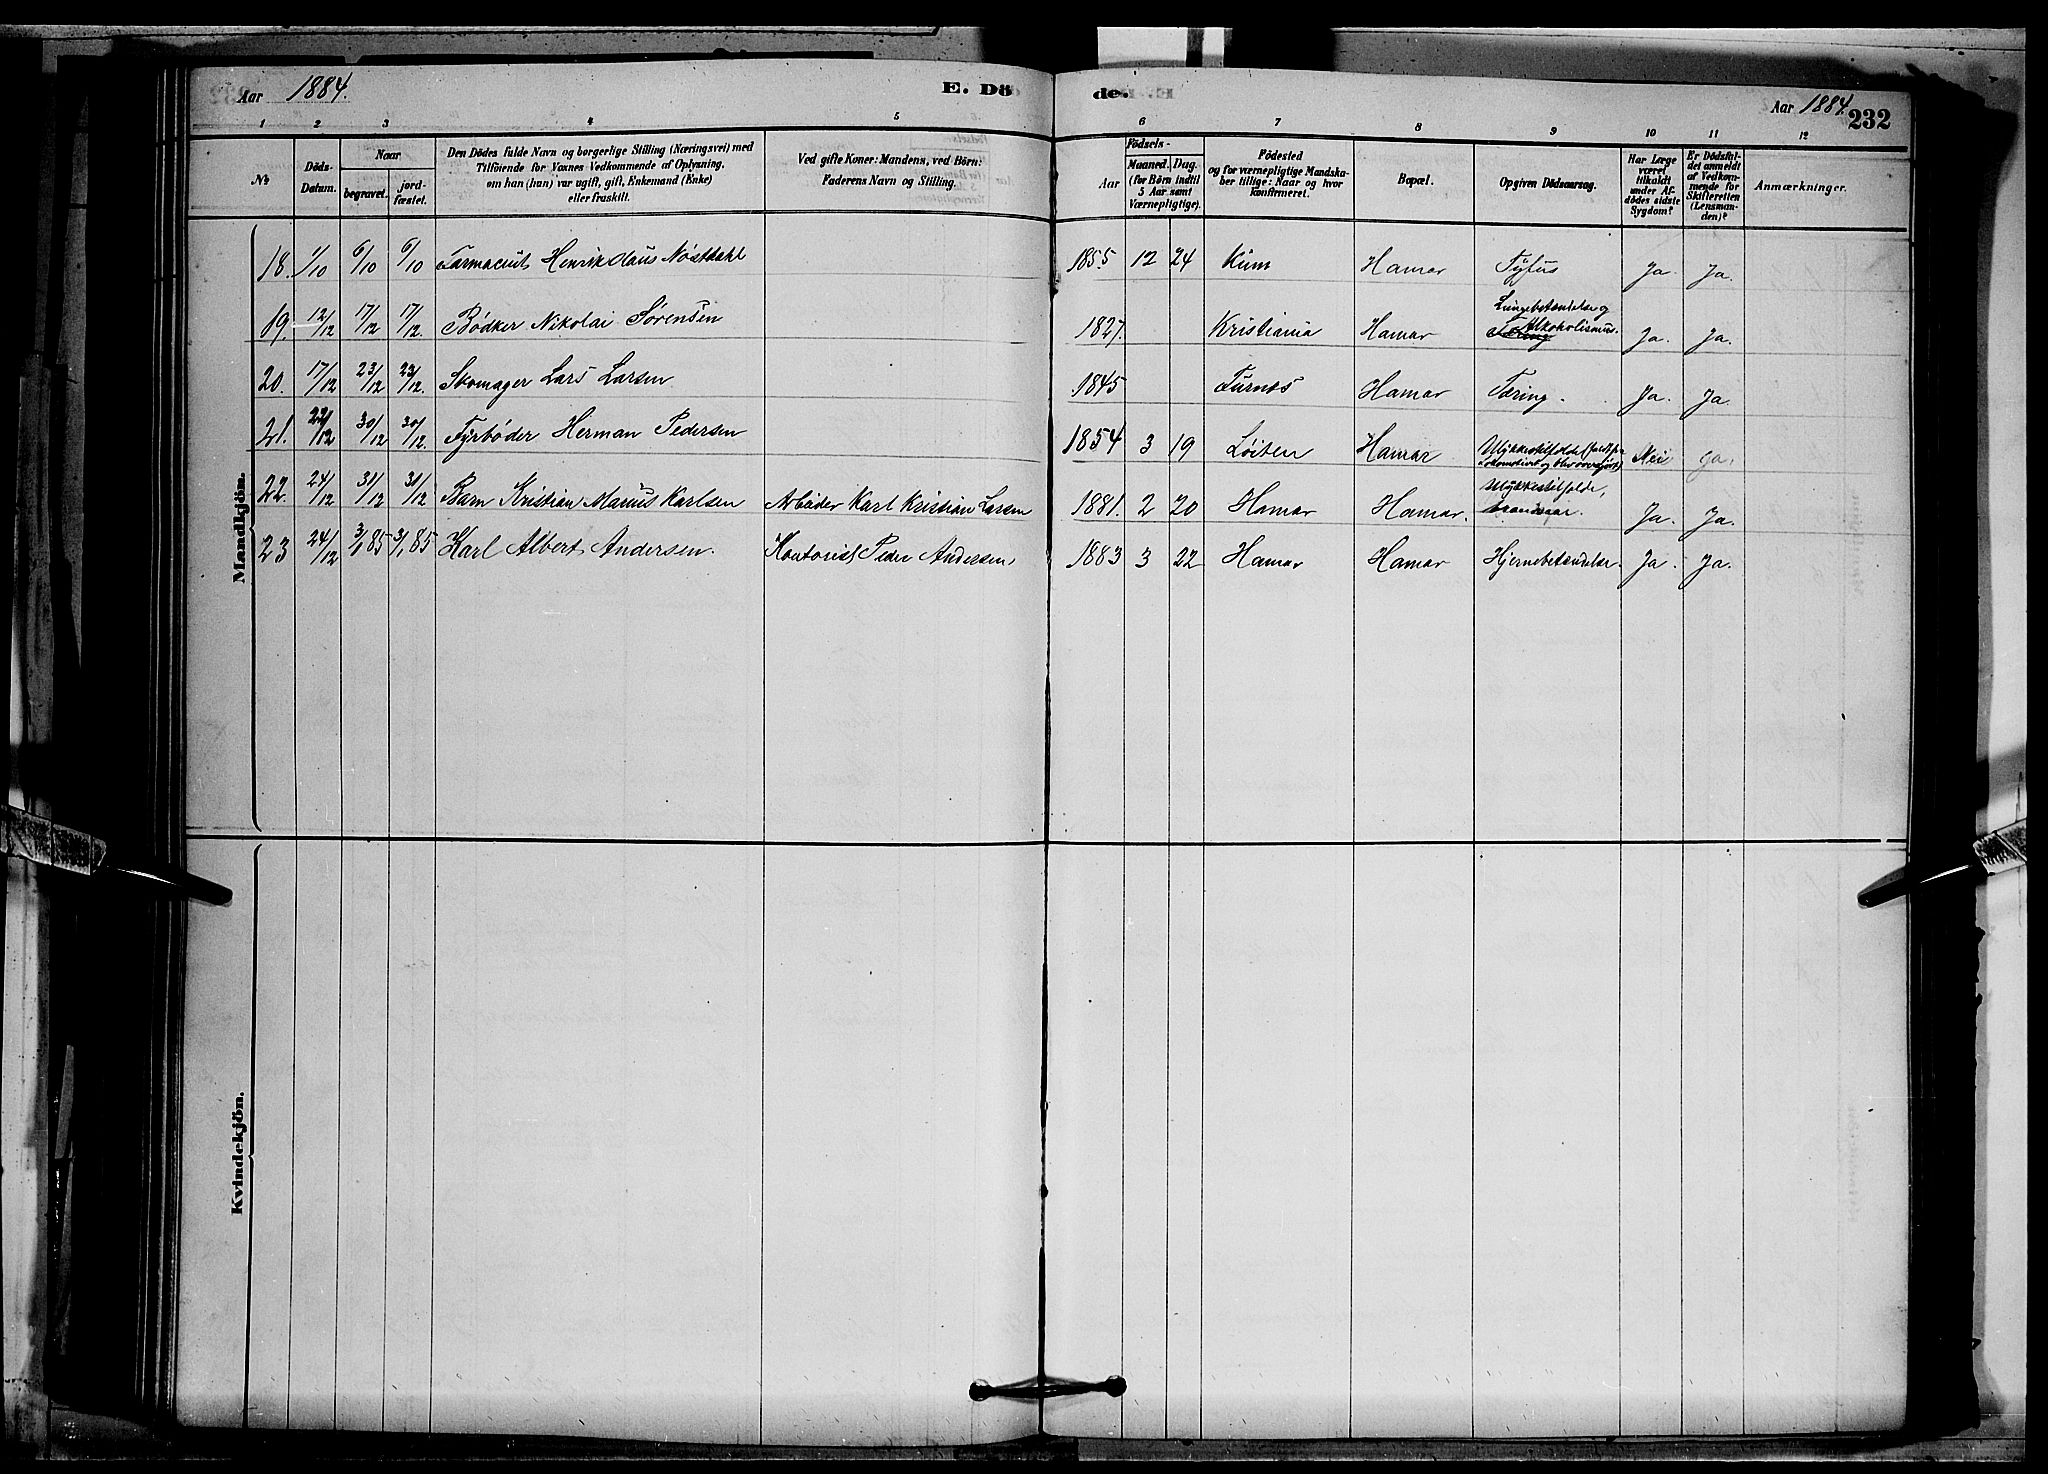 Aar 1884.
E. Dö
de.
Aar 1884.
232
1 2 3 4 5 6 7 8 9 10 11 12
№
Döds-
Datum.
Naar
begravet.
jord-
fæstet.
Den Dödes fulde Navn og borgerlige Stilling (Næringsvei) med
Tilföiende for Voxnes Vedkommende af Oplysning.
om han (hun) var ugift, gift, Enkemand (Enke)
eller fraskilt.
Ved gifte Koner: Mandens, ved Börn:
Faderens Navn og Stilling.
Födsels-
Aar
Maaned. Dag.
(for Börn indtil
5 Aar samt
Værnepligtige).
Födested
og for værnepligtige Mandska-
ber tillige: Naar og hvor
konfirmeret.
Bopæl.
Opgiven Dödsaarsag.
Har Læge
været
tilkaldt
under Af-
dödes sidste
Sygdom?
Er Dödsfal-
det anmeldt
af Vedkom-
mende for
Skifteretten
(Lensman-
den)?
Anmærkninger.
Mandkjön.
18. 1/10 6/10 6/10 Farmaceut Henrik Claus Nøstdahl 1855 12 24 Hamar Tyfus Ja. Ja.
19. 12/12 17/12 17/12. Bødker Nikolai Sørensen 1827. Kristiania Hamar Lungebetændelse og
Alkoholismus. Ja. Ja.
20. 17/12 23/12 23/12. Skomager Lars Larsen 1845 Furnes Hamar Tæring. Ja. Ja.
21. 22/12 30/12 30/12. Fyrbøder Herman Pedersen 1854 3 19 Løiten Hamar Ulykkestilfælde Nei Ja.
22. 24/12 31/12 31/12 Barn Kristian Marius Karlsen Arbeider Karl Kristian Larsen 1881. 2 20 Hamar Hamar. Ulykkestilfælde,
Ja. Ja.
23 24/12 3/1 85 3/1 85 Karl Albert Andersen. Kontorist Peder Andersen, 1883 3 22 Hamar Hamar Hjernebetændelse. Ja. Ja.
Kvindekjön.